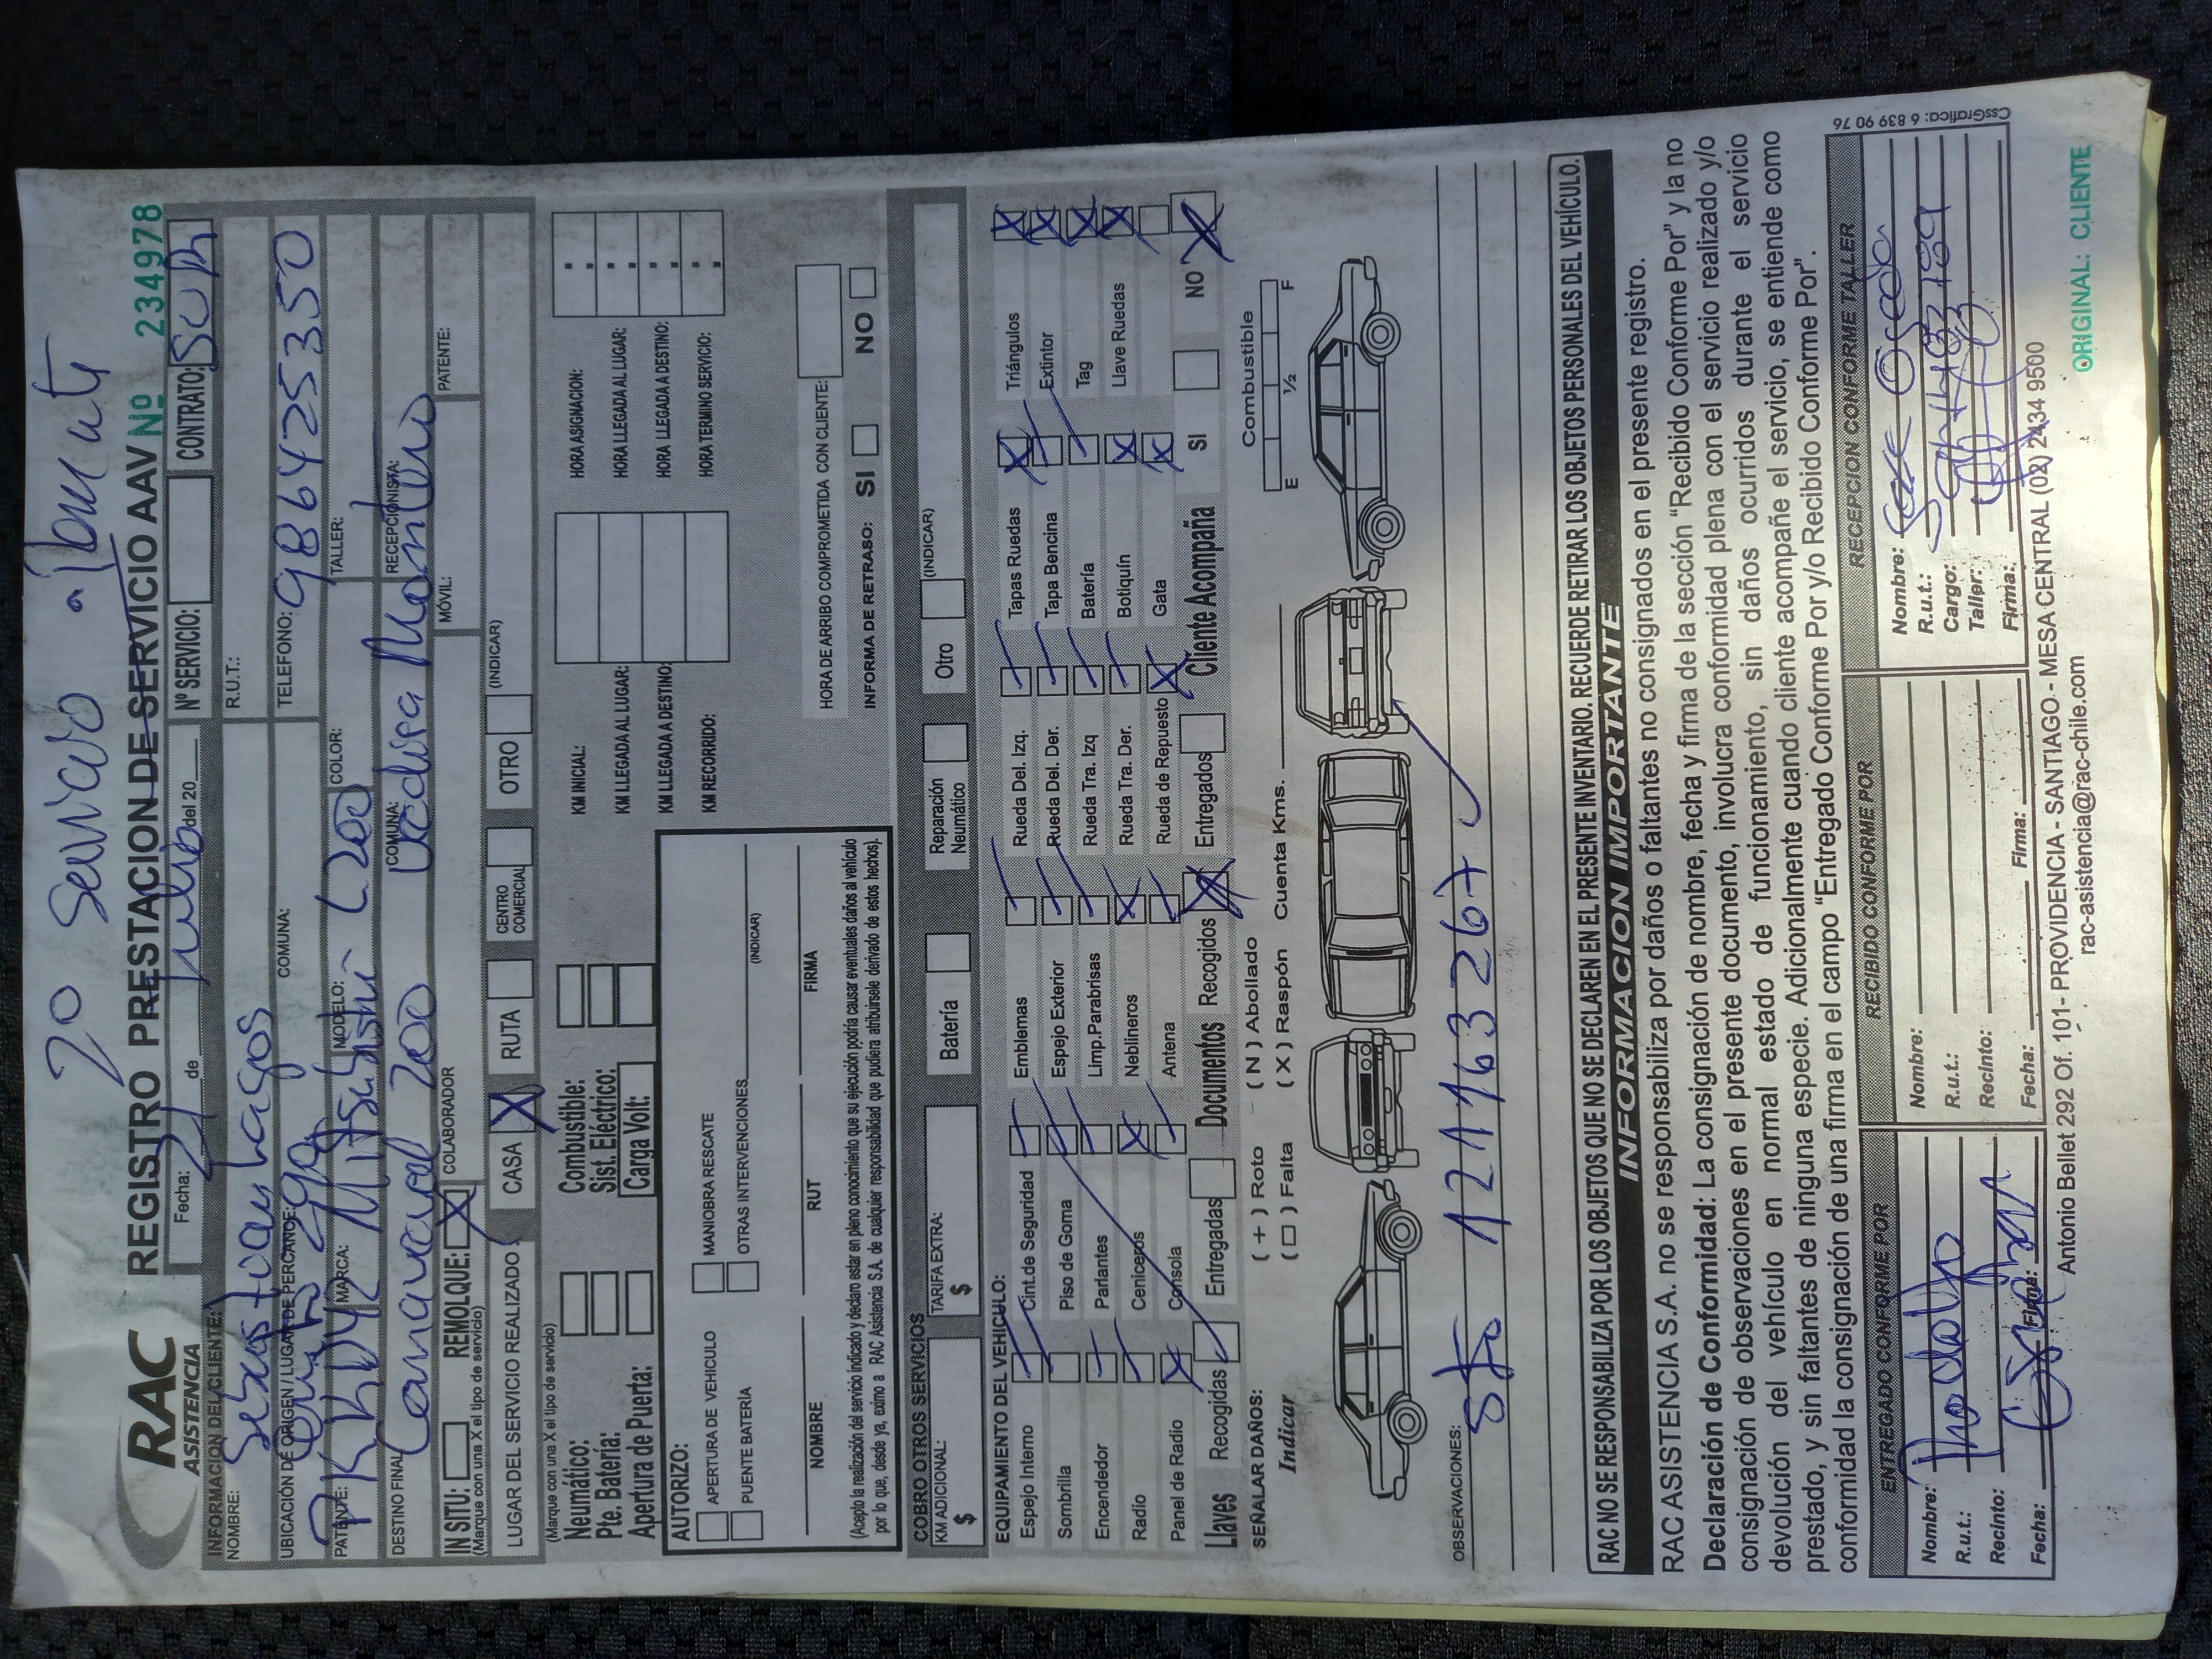 2º Servicio a Domicilio
RAC
ASISTENCIA
REGISTRO PRESTACION DE SERVICIO AAV Nº 234978
Fecha: 21 de Julio del 20
Nº SERVICIO:
CONTRATO: SURA
INFORMACION DEL CLIENTE:
NOMBRE: Sebastian Lagos
R.U.T.:
UBICACIÓN DE ORIGEN / LUGAR DE PERCANCE:
COMUNA:
TELEFONO: 986425350
PATENTE: PKKD42
MARCA: Mitsubishi
MODELO: L200
COLOR:
TALLER:
DESTINO FINAL: Carrascal 200
COMUNA:
RECEPCIONISTA:
IN SITU:
REMOLQUE: X
COLABORADOR
MÓVIL:
PATENTE:
(Marque con una X el tipo de servicio)
LUGAR DEL SERVICIO REALIZADO
CASA X
RUTA
CENTRO COMERCIAL
OTRO
(INDICAR)
(Marque con una X el tipo de servicio)
Neumático:
Combustible:
KM INICIAL:
HORA ASIGNACION:
Pte. Batería:
Sist. Eléctrico:
KM LLEGADA AL LUGAR:
HORA LLEGADA AL LUGAR:
Apertura de Puerta:
Carga Volt:
KM LLEGADA A DESTINO:
HORA LLEGADA A DESTINO:
KM RECORRIDO:
HORA TERMINO SERVICIO:
AUTORIZO:
APERTURA DE VEHICULO
MANIOBRA RESCATE
PUENTE BATERÍA
OTRAS INTERVENCIONES
(INDICAR)
HORA DE ARRIBO COMPROMETIDA CON CLIENTE:
INFORMA DE RETRASO: SI NO
NOMBRE
RUT
FIRMA
(Acepto la realización del servicio indicado y declaro estar en pleno conocimiento que su ejecución podría causar eventuales daños al vehículo
por lo que, desde ya, eximo a RAC Asistencia S.A. de cualquier responsabilidad que pudiera atribuirsele derivado de estos hechos).
COBRO OTROS SERVICIOS
KM ADICIONAL: $
TARIFA EXTRA: $
Batería
Reparación Neumático
Otro
(INDICAR)
EQUIPAMIENTO DEL VEHICULO:
Espejo Interno
Cint.de Seguridad
Emblemas
Rueda Del. Izq.
Tapas Ruedas X
Triángulos X
Sombrilla
Piso de Goma
Espejo Exterior
Rueda Del. Der.
Tapa Bencina
Extintor X
Encendedor
Parlantes
Limp.Parabrisas
Rueda Tra. Izq
Batería
Tag X
Radio
Ceniceros X
Neblineros X
Rueda Tra. Der.
Botiquín X
Llave Ruedas X
Panel de Radio X
Consola
Antena
Rueda de Repuesto X
Gata X
Llaves Recogidas Entregadas
Documentos Recogidos X Entregados
Cliente Acompaña SI NO X
SEÑALAR DAÑOS:
Indicar
( + ) Roto
( N ) Abollado
( □ ) Falta
( X ) Raspón
Cuenta Kms.
Combustible
E 1/2 F
OBSERVACIONES:
RAC NO SE RESPONSABILIZA POR LOS OBJETOS QUE NO SE DECLAREN EN EL PRESENTE INVENTARIO. RECUERDE RETIRAR LOS OBJETOS PERSONALES DEL VEHÍCULO.
INFORMACION IMPORTANTE
RAC ASISTENCIA S.A. no se responsabiliza por daños o faltantes no consignados en el presente registro.
Declaración de Conformidad: La consignación de nombre, fecha y firma de la sección "Recibido Conforme Por" y la no
consignación de observaciones en el presente documento, involucra conformidad plena con el servicio realizado y/o
devolución del vehículo en normal estado de funcionamiento, sin daños ocurridos durante el servicio
prestado, y sin faltantes de ninguna especie. Adicionalmente cuando cliente acompañe el servicio, se entiende como
conformidad la consignación de una firma en el campo "Entregado Conforme Por y/o Recibido Conforme Por".
ENTREGADO CONFORME POR
RECIBIDO CONFORME POR
RECEPCION CONFORME TALLER
Nombre:
R.u.t.:
Recinto:
Fecha:
Firma:
Nombre:
R.u.t.:
Recinto:
Fecha:
Firma:
Nombre: Jose Ojeda
R.u.t.:
Cargo:
Taller:
Firma:
Antonio Bellet 292 Of. 101- PROVIDENCIA - SANTIAGO - MESA CENTRAL (02) 2434 9500
rac-asistencia@rac-chile.com
ORIGINAL: CLIENTE
CssGrafica: 6 839 90 76